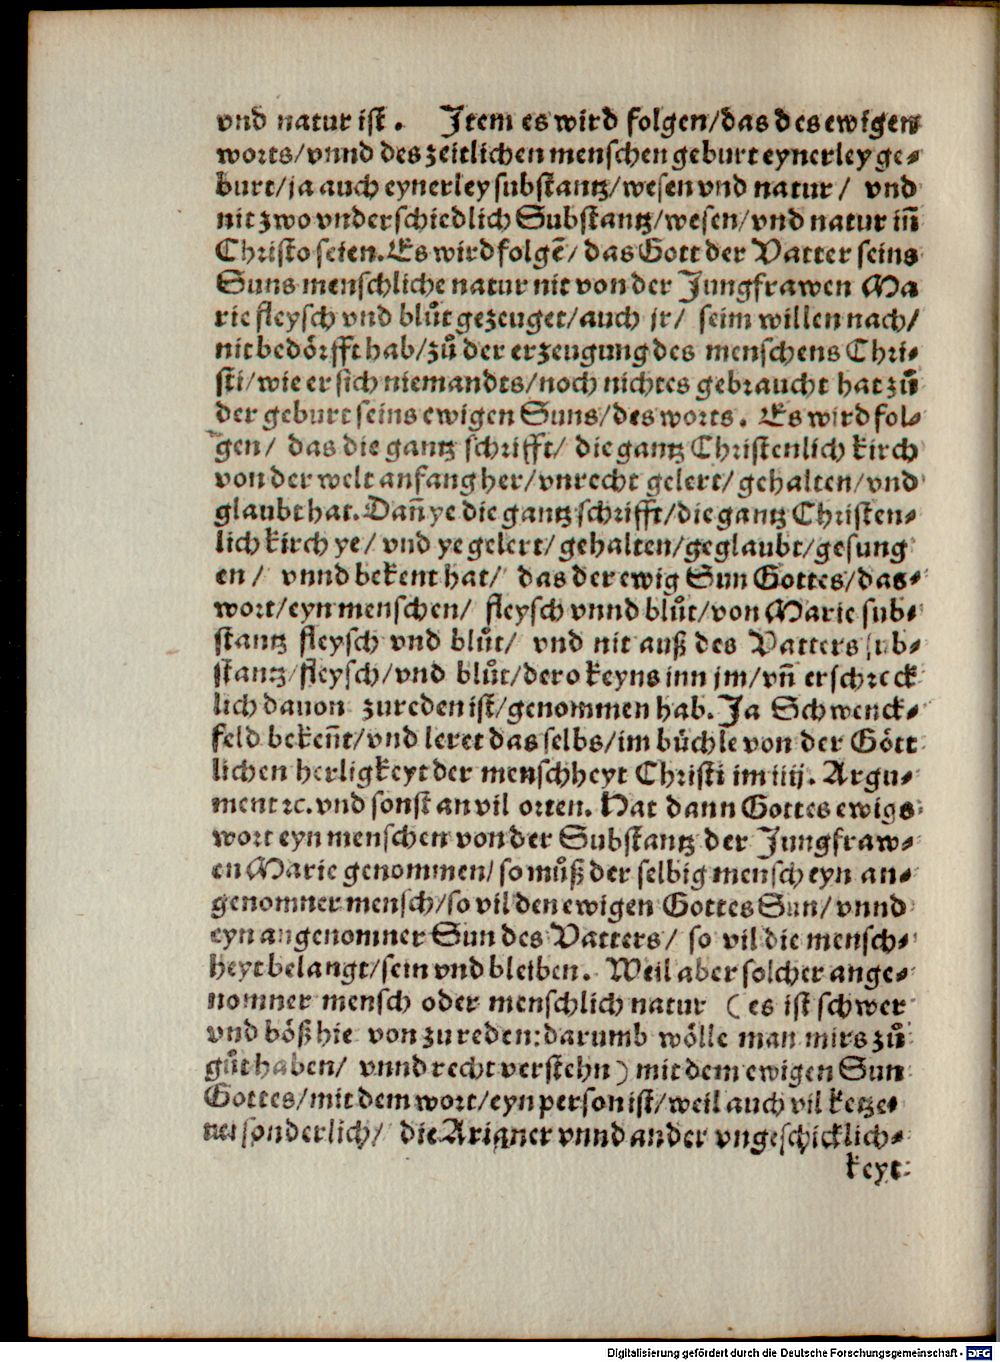 vnd natur ist. Item es wird folgen/das des ewigen
worts/vnnd des zeitlichen menschen geburt eynerley ge⸗
burt/ja auch eynerley substantz/wesen vnd natur/ vnd
nit zwo vnderschiedlich Substantz/wesen/vnd natur iñ
Christo seien. Es wird folgẽ/das Gott der Vatter seins
Suns menschliche natur nit von der Jungfrawen Ma
rie fleysch vnd blůt gezeuget/auch jr/ seim willen nach/
nit bedörfft hab/zů der erzeugung des menschens Chri⸗
sti/wie er sich niemandts/noch nichtes gebraucht hat zů
der geburt seins ewigen Suns/des worts. Es wird fol⸗
gen/ das die gantz schrifft/ die gantz Christenlich kirch
von der welt anfang her/vnrecht gelert/gehalten/vnd
glaubt hat. Dañ ye die gantz schrifft/die gantz Christen⸗
lich kirch ye/ vnd ye gelert/gehalten/geglaubt/gesung
en/ vnnd bekent hat/ das der ewig Sun Gottes/das⸗
wort/eyn menschen/ fleysch vnnd blůt/von Marie sub⸗
stantz fleysch vnd blůt/ vnd nit auß des Vatters sub⸗
stantz/fleysch/vnd blůt/dero keyns inn jm/vñ erschreck
lich dauon zureden ist/genommen hab. Ja Schwenck⸗
feld bekeñt/vnd leret das selbs/im büchle von der Gött
lichen herligkeyt der menschheyt Christi im iiij. Argu⸗
ment ꝛc. vnd sonst an vil orten. Hat dann Gottes ewigs
wort eyn menschen von der Substantz der Jungfraw⸗
en Marie genommen/so můß der selbig mensch eyn an⸗
genomner mensch/so vil den ewigen Gottes Sun/vnnd
eyn angenomner Sun des Vatters/ so vil die mensch⸗
heyt belangt/sein vnd bleiben. Weil aber solcher ange⸗
nomner mensch oder menschlich natur (es ist schwer
vnd böß hie von zu reden: darumb wölle man mirs zů
gůt haben/ vnnd recht verstehn) mit dem ewigen Sun
Gottes/mit dem wort/eyn person ist/weil auch vil ketze⸗
rei sonderlich/ die Arianer vnnd ander vngeschicklich⸗
keyt
Digitalisierung gefördert durch die Deutsche Forschungsgemeinschaft - DFG